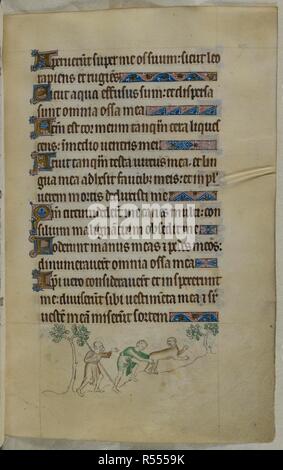 Aperuerunt super me os suum: sicut leo
rapiens et rugiens
Sicut aqua effusus sum: et dispersa
sunt omnia ossa mea
Factum est cor meum tanqm cera lique
cens: in medio ventris mei
Aruit tanqm testa virtus mea, et lin
gua mea adhesit faucib; meis: et in pul
verem mortis deduxisti me
Qm circumdederunt me canes multi: con
silium malignantium obsedit me
Foderunt manus meas et pedes meos:
dinumeraverunt omnia ossa mea
Ipsi vero consideraverunt et inspexerunt
me: diviserunt sibi vestimenta mea et sr
vestem meam miserunt sortem
alamy
www.alamy.com
R5559K